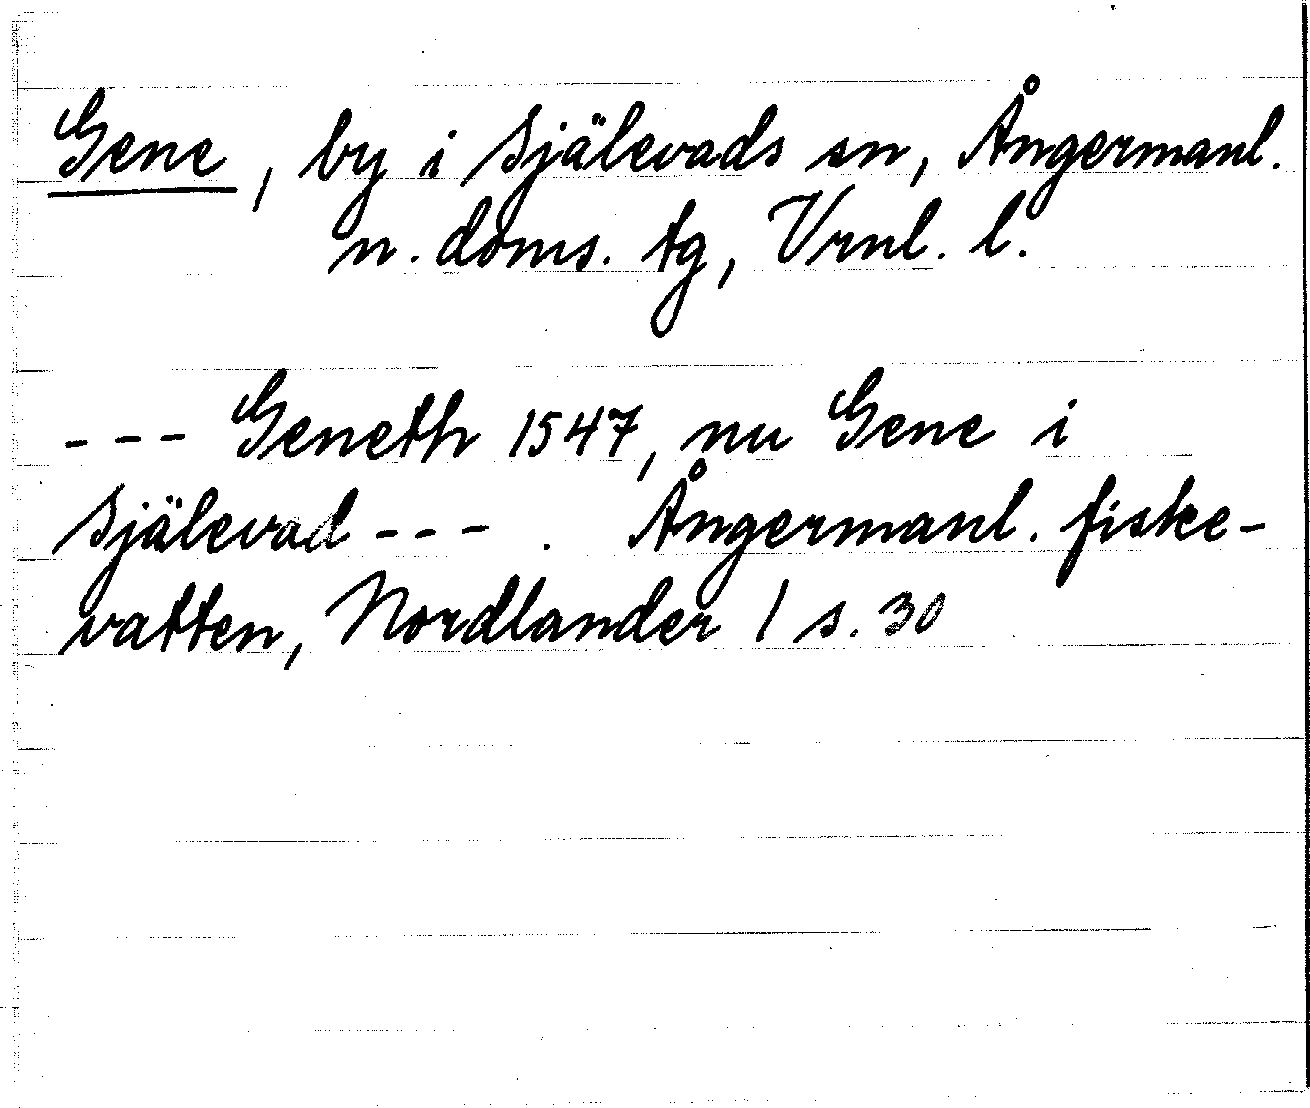 Gene, by i Själevads sn, Ångermanl.
n. doms. tg, Vrnl. l.
--- Geneth 1547, nu Gene i
Själevad ---. Ångermanl. fiske-
vatten, Nordlander I s. 30